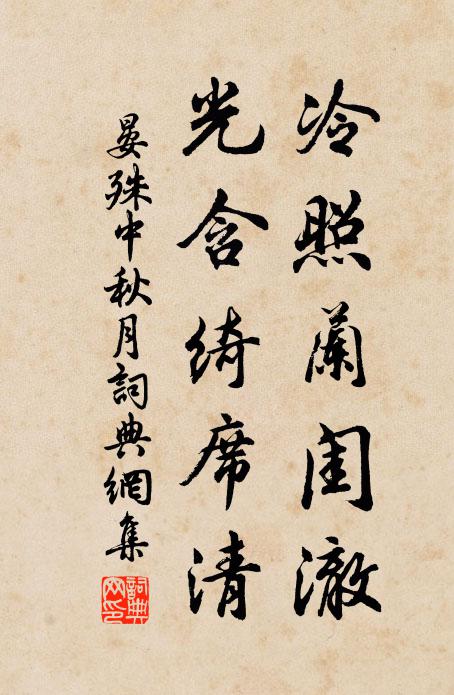 冷照蘭閨澈
光含綺席清
晏殊中秋月詞典網集
詞典网印